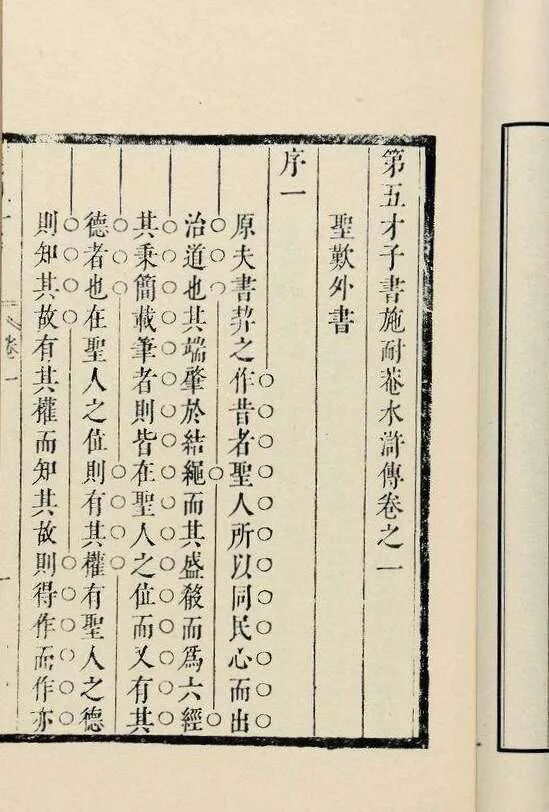 第五才子書施耐菴水滸傳卷之一
聖歎外書
序一
原夫書契之作昔者聖人所以同民心而出
治道也其端肇於結繩而其盛殽而爲六經
其秉簡載筆者則皆在聖人之位而又有其
德者也在聖人之位則有其權有聖人之德
則知其故有其權而知其故則得作而作亦
卷一